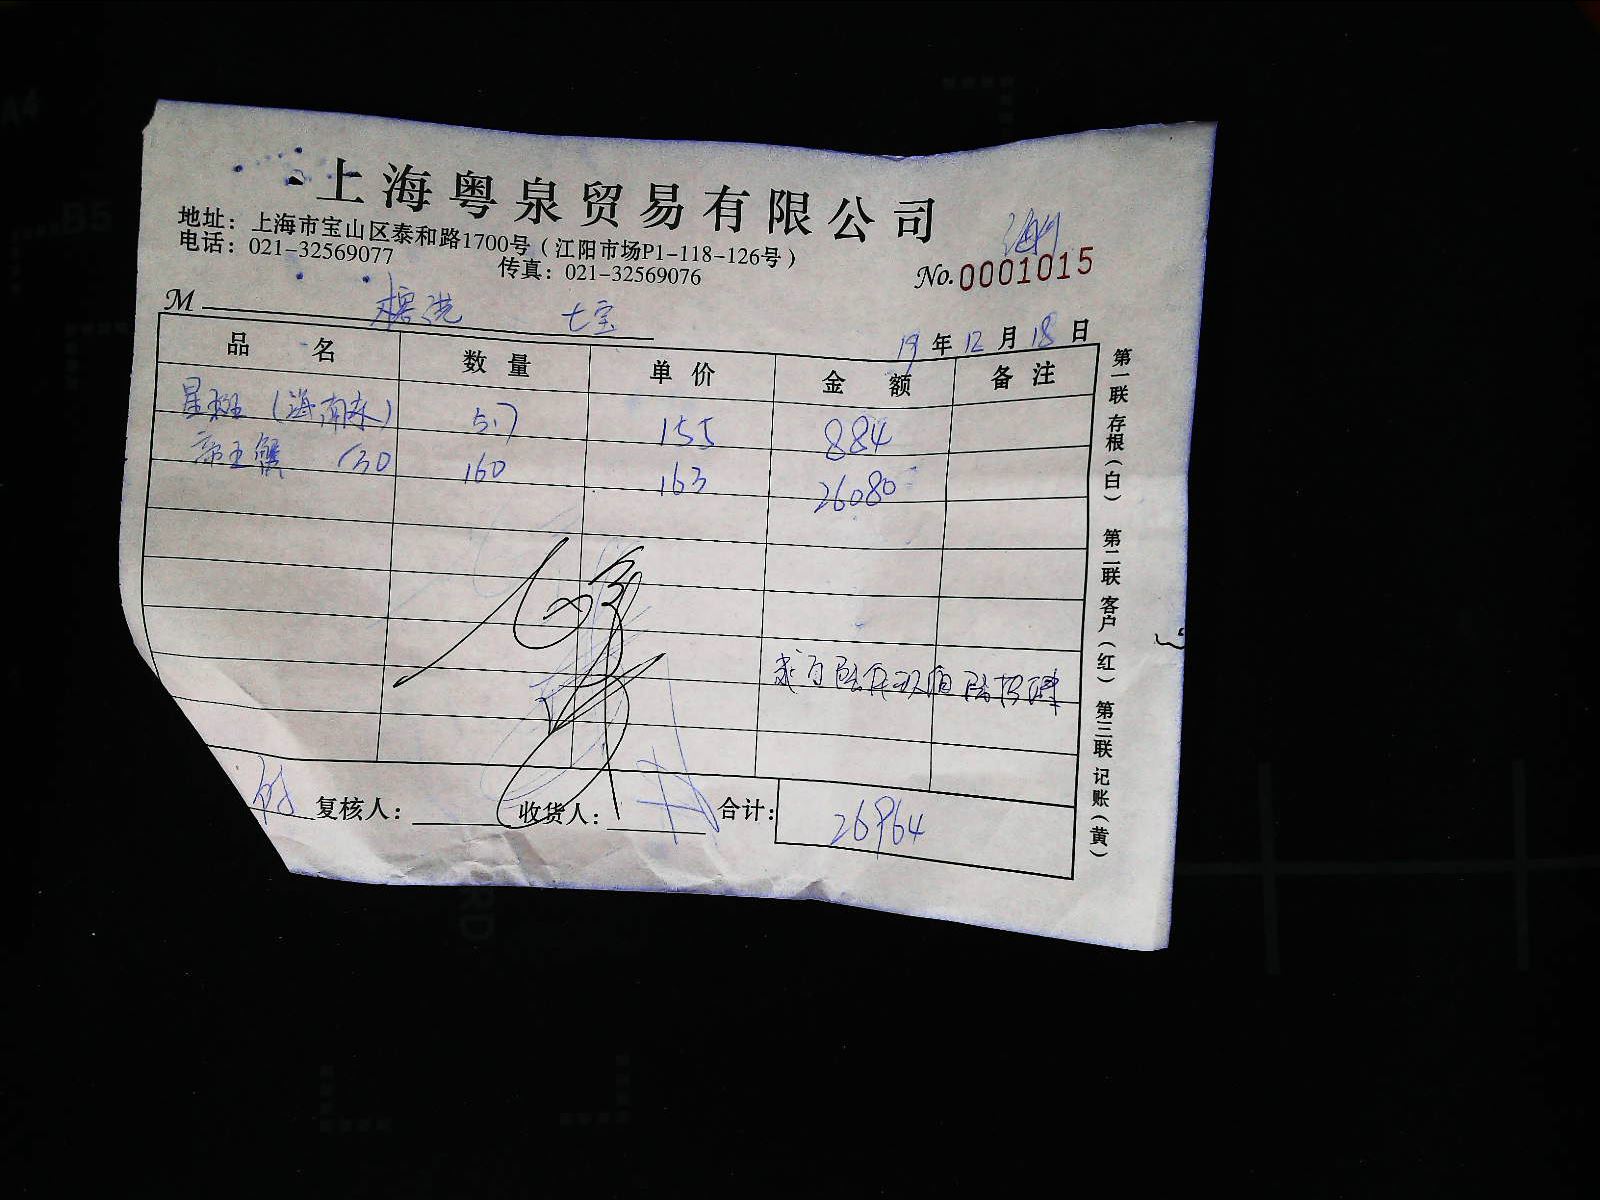 上海粤泉贸易有限公司
地址：上海市宝山区泰和路1700号（江阳市场P1-118-126号）
电话：021-32569077 传真：021-32569076
No.0001015
M 七宝
19年12月18日
品名 数量 单价 金额 备注
星斑（海南东） 5.7 155 884
帝王蟹 130 160 163 26080
复核人： 收货人： 合计： 26964
第一联 存根（白） 第二联 客户（红） 第三联 记账（黄）
A4
B5